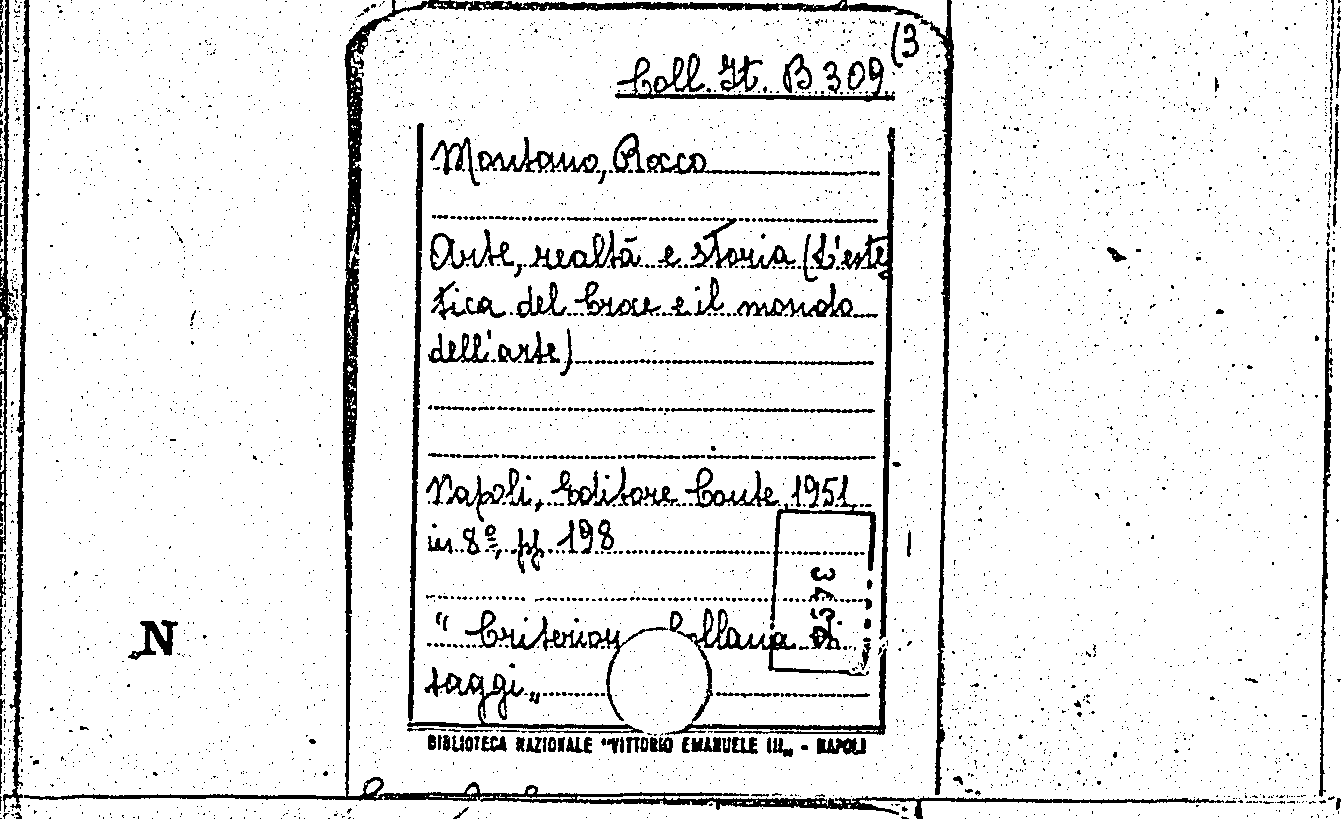 (3
Coll. It. B 309
Montano, Rocco
Arte, realtà e storia (L'este
tica del Croce e il mondo
dell'arte)
Napoli, Editore Conte, 1951,
in 8º, pp. 198
" Criterion Collana di
saggi „
N
BIBLIOTECA NAZIONALE "VITTORIO EMANUELE III„ - NAPOLI